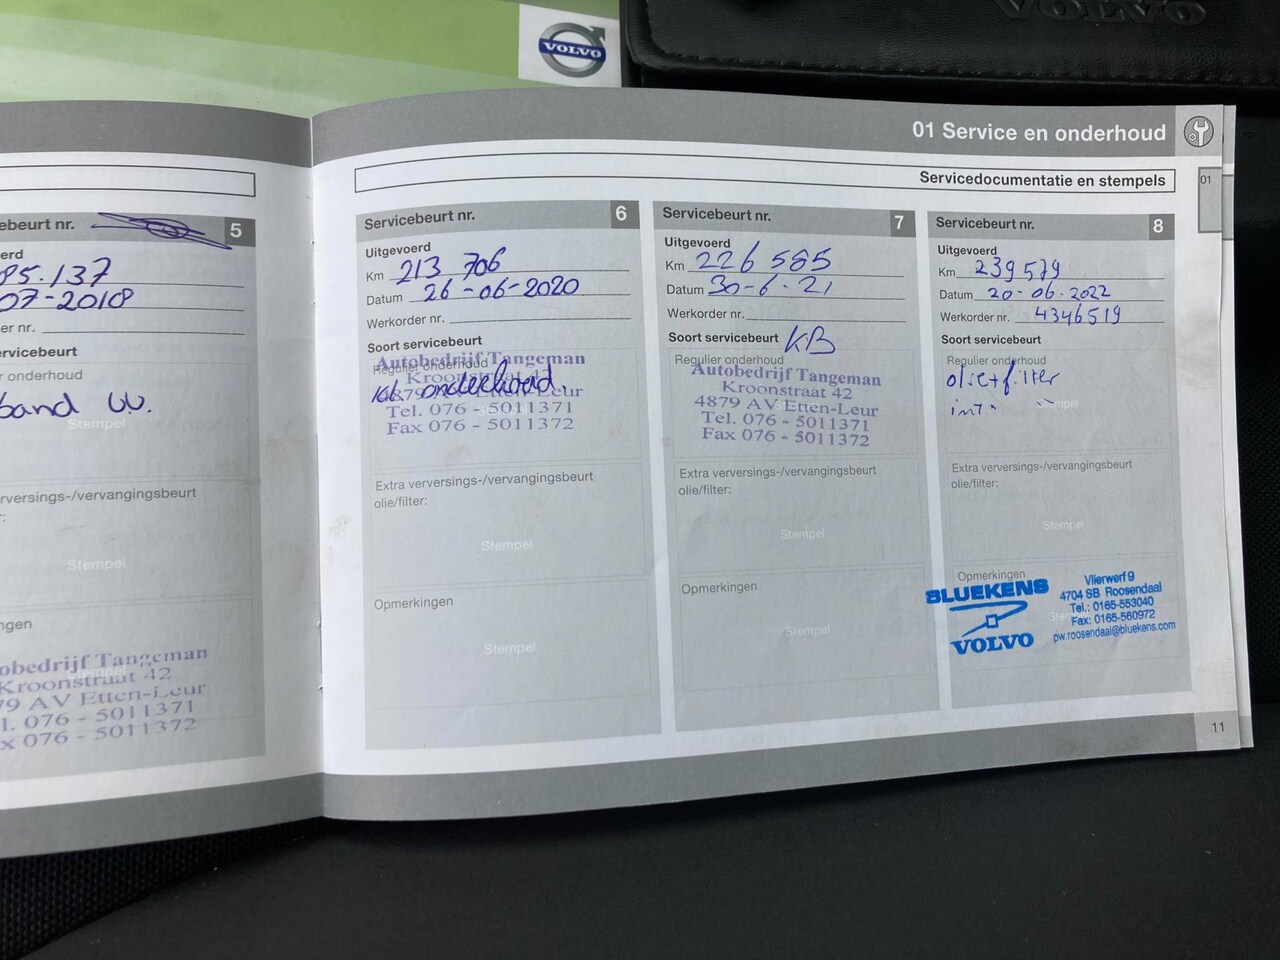 VOLVO
VOLVO
01 Service en onderhoud
Servicedocumentatie en stempels
01
ebeurt nr. 5
erd
85.137
07-2018
er nr.
rvicebeurt
r onderhoud
band W.
Stempel
rversings-/vervangingsbeurt
r:
Stempel
ngen
obedrijf Tangeman
Kroonstraat 42
79 AV Etten-Leur
l. 076 - 5011371
x 076 - 5011372
Servicebeurt nr. 6
Uitgevoerd
Km 213 706
Datum 26-06-2020
Werkorder nr.
Soort servicebeurt
Regulier onderhoud
Autobedrijf Tangeman
Kroonstraat 42
4879 AV Etten-Leur
Tel. 076 - 5011371
Fax 076 - 5011372
onderhoud.
Extra verversings-/vervangingsbeurt
olie/filter:
Stempel
Opmerkingen
Stempel
Servicebeurt nr. 7
Uitgevoerd
Km 226 585
Datum 30-6-21
Werkorder nr.
Soort servicebeurt KB
Regulier onderhoud
Autobedrijf Tangeman
Kroonstraat 42
4879 AV Etten-Leur
Tel. 076 - 5011371
Fax 076 - 5011372
Extra verversings-/vervangingsbeurt
olie/filter:
Stempel
Opmerkingen
Stempel
Servicebeurt nr. 8
Uitgevoerd
Km 239579
Datum 20-06-2022
Werkorder nr. 4346519
Soort servicebeurt
Regulier onderhoud
olie+filter
int.
Stempel
Extra verversings-/vervangingsbeurt
olie/filter:
Stempel
Opmerkingen
BLUEKENS
VOLVO
Vlierwerf 9
4704 SB Roosendaal
Tel.: 0165-553040
Fax: 0165-560972
pw.roosendaal@bluekens.com
11